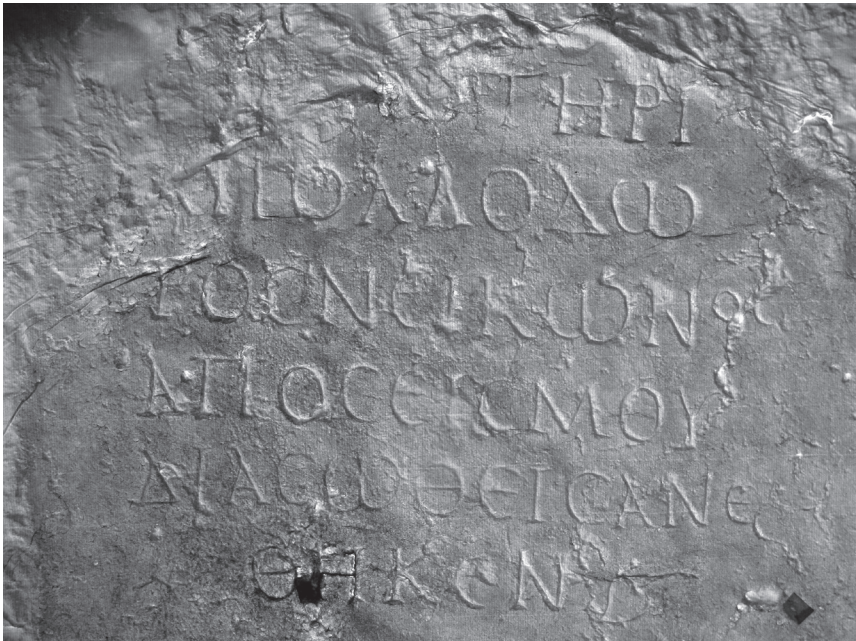 ΤΗΡΙ
ΑΠΩΛΛΟΔΩ
ΡΟϹΝΕΙΚΩΝΟϹ
ΑΠΟϹΕΙϹΜΟΥ
ΔΙΑϹΩΘΕΙϹΑΝΕ
ΘΗΚΕΝ